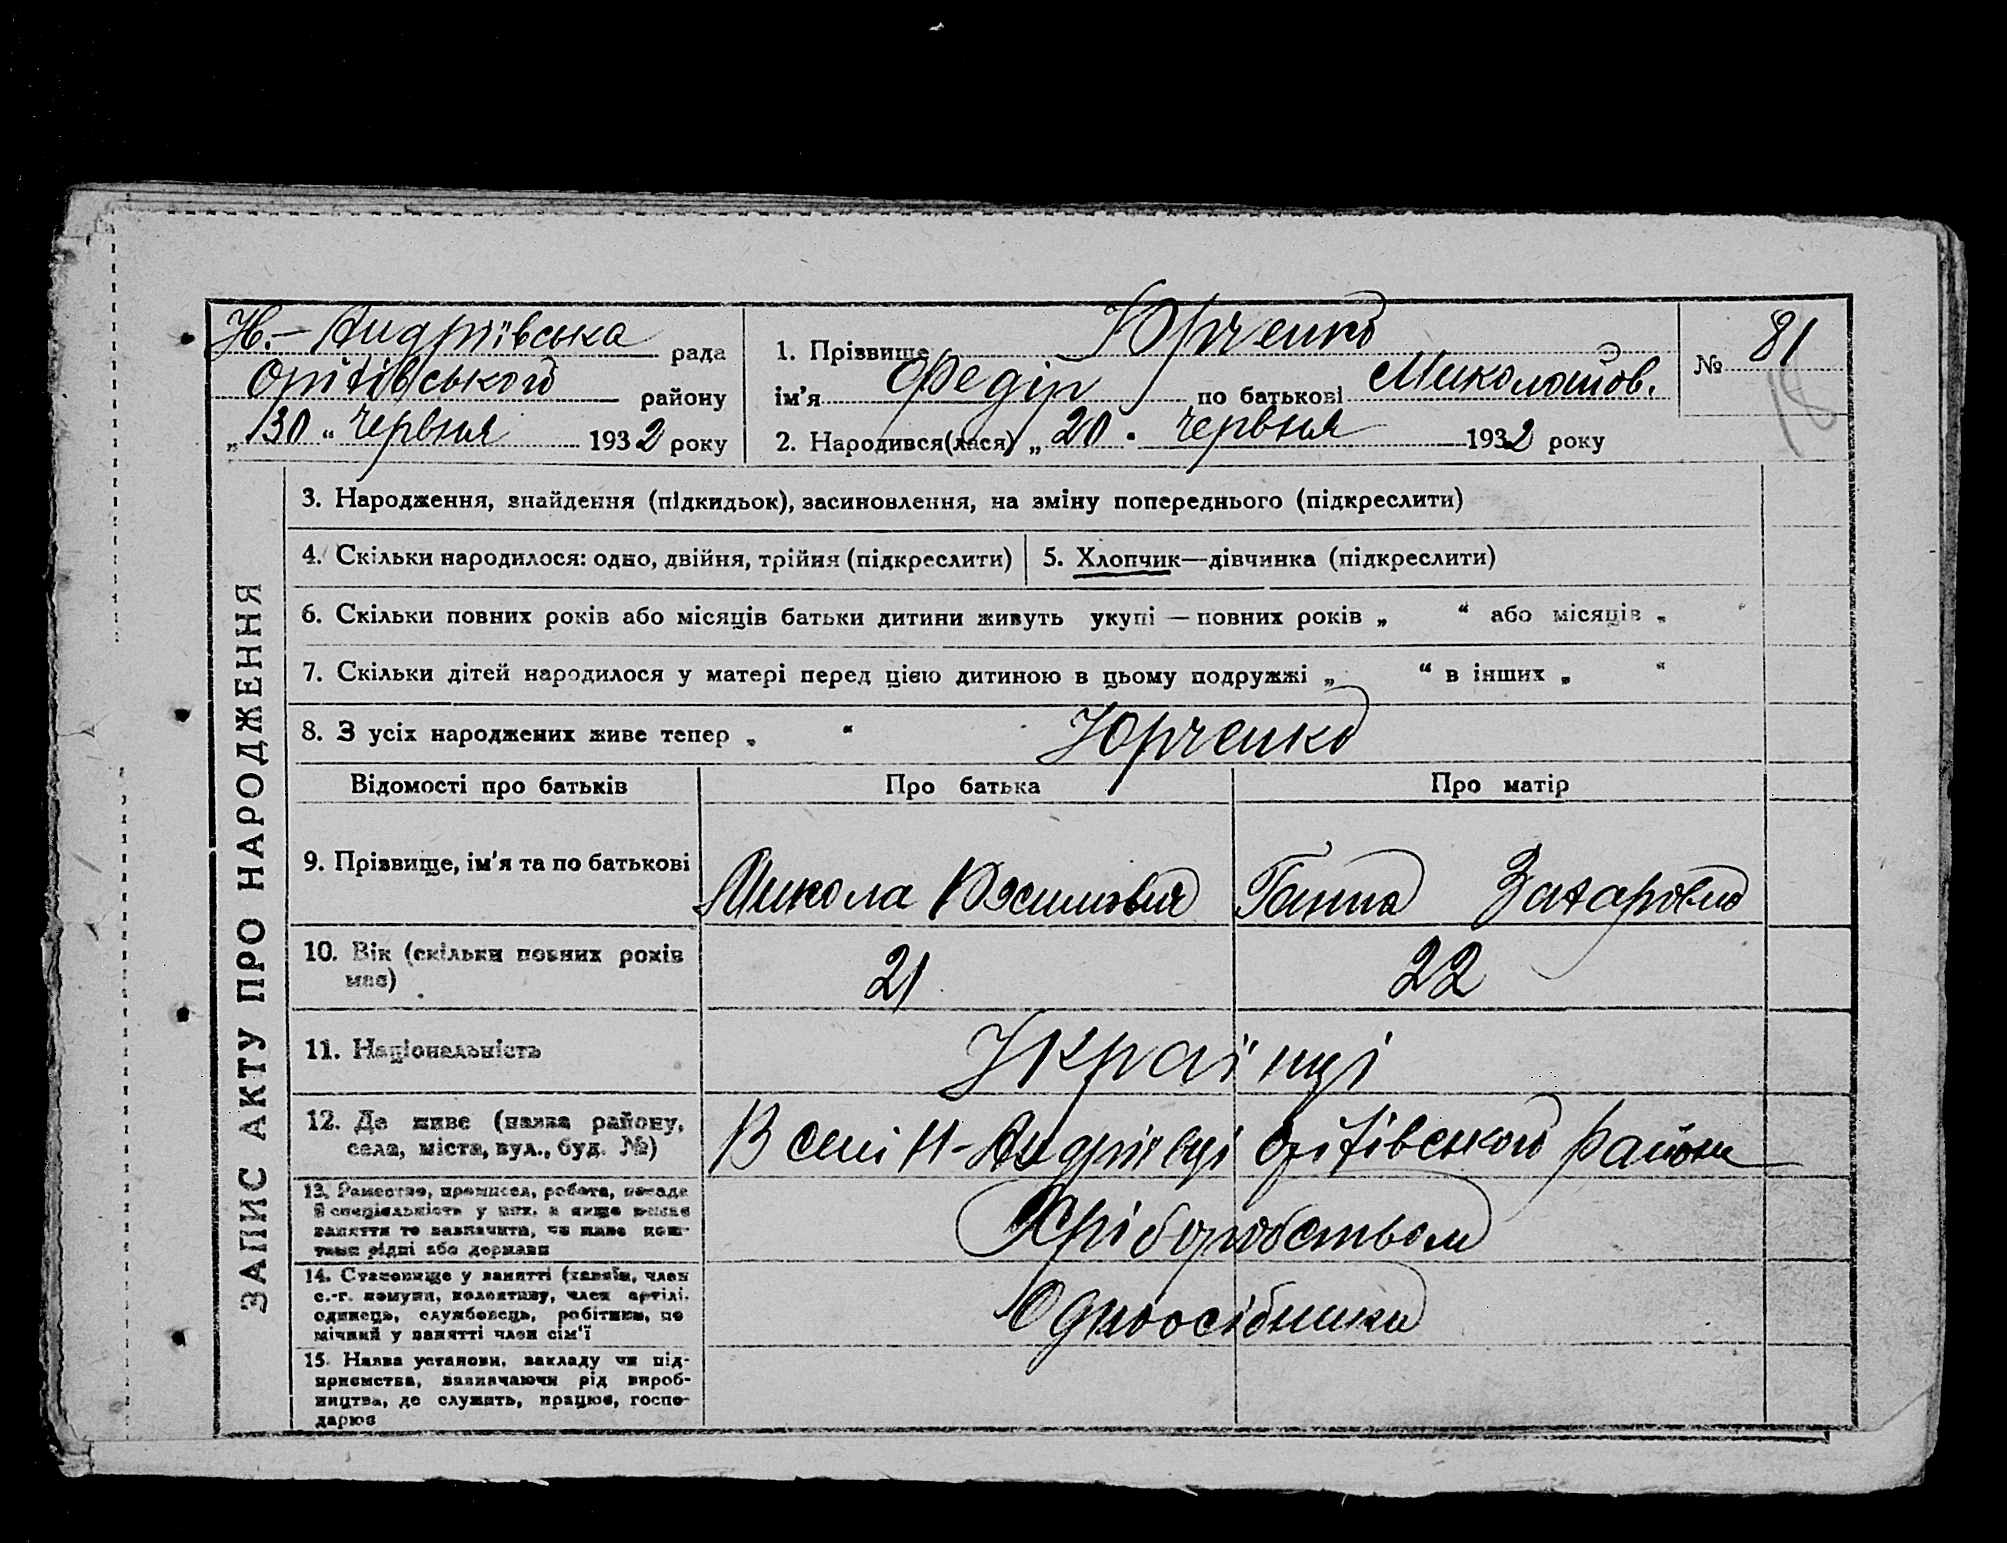 Н.-Андріївська рада
Оріхівського району
„30“ червня 1932 року
1. Прізвище Юрченко
ім'я Федір по батькові Миколайов.
2. Народився(лася) „20" червня 1932 року
№ 81
18
ЗАПИС АКТУ ПРО НАРОДЖЕННЯ
3. Народження, знайдення (підкидьок), засиновлення, на зміну попереднього (підкреслити)
4. Скільки народилося: одно, двійня, трійня (підкреслити)
5. Хлопчик—дівчинка (підкреслити)
6. Скільки повних років або місяців батьки дитини живуть укупі — повних років „ “ або місяців „ “
7. Скільки дітей народилося у матері перед цією дитиною в цьому подружжі „ “ в інших „ “
8. З усіх народжених живе тепер „ “ Юрченко
Відомості про батьків Про батька Про матір
9. Прізвище, ім'я та по батькові Микола Василович Ганна Захаровна
10. Вік (скільки повних років
має) 21 22
11. Національність Українці
12. Де живе (назва району,
села, міста, вул., буд. №) В селі Н-Андріївці Оріхівського району
13. Ремество, промисел, робота, посада
й спеціяльність у них, а якщо немає
заняття то зазначити, чи живе кош-
тами рідні або держави
Хліборобством
14. Становище у занятті (хазяїн, член
с.-г. комуни, колективу, член артілі,
одинець, службовець, робітник, по
мічний у занятті член сім'ї
Одноосібники
15. Назва установи, закладу чи під-
приємства, зазначаючи рід вироб-
ництва, де служить, працює, госпо-
дарює